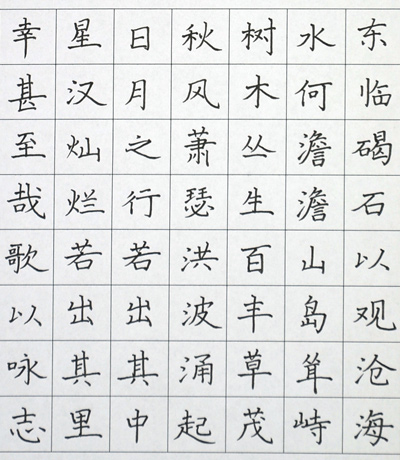 东临碣石以观沧海
水何澹澹山岛耸峙
树木丛生百丰草茂
秋风萧瑟洪波涌起
日月之行若出其中
星汉灿烂若出其里
幸甚至哉歌以咏志